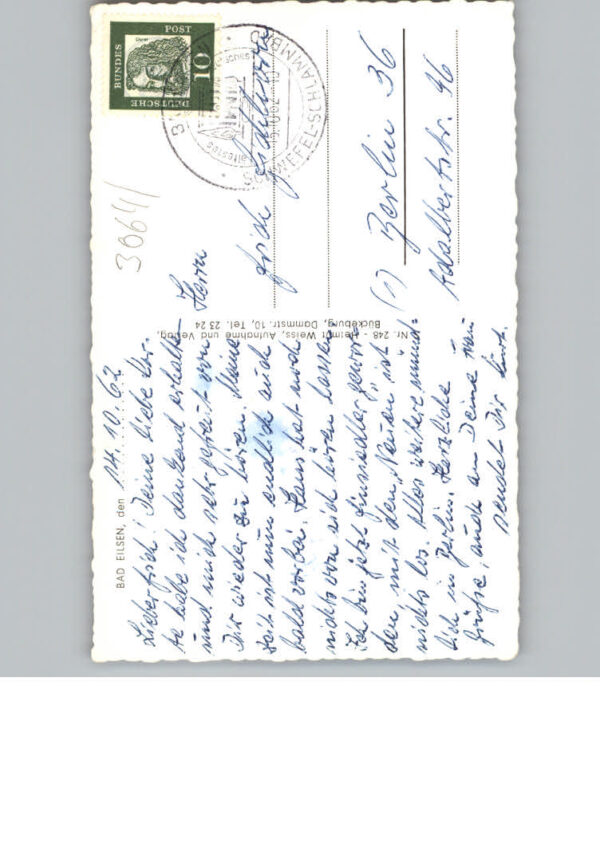 BAD EILSEN, den 14.10.62
Lieber Erich! Deine liebe Kar-
te habe ich dankend erhalten
und mich sehr gefreut von
Dir wieder zu hören. Meine
Zeit ist nun endlich auch
bald vorbei. Hans hat noch
nichts von sich hören lassen
Ich bin jetzt Einsiedler gewor-
den, mit den "Neuen" ist
nichts los. Alles weitere münd-
lich in Berlin. Herzliche
Grüße, auch an Deine Frau
sendet Dir
Nr. 248 - Helmut Weiss, Aufnahme und Verlag,
Bückeburg, Dammstr. 10, Tel. 23 24
Herrn
Erich
(1) Berlin 36
Adalbertstr. 96
30641
DEUTSCHE
BUNDES
POST
10
SCHWEFEL-SCHLAMMB